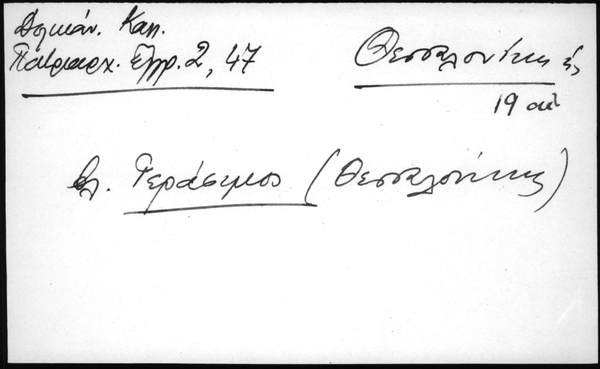 Δελικάν. Καλ.
Πατριαρχ. Ἔγγρ. 2, 47
Θεσσαλονίκης
19 αἰ
βλ. Γεράσιμος (Θεσσαλονίκης)